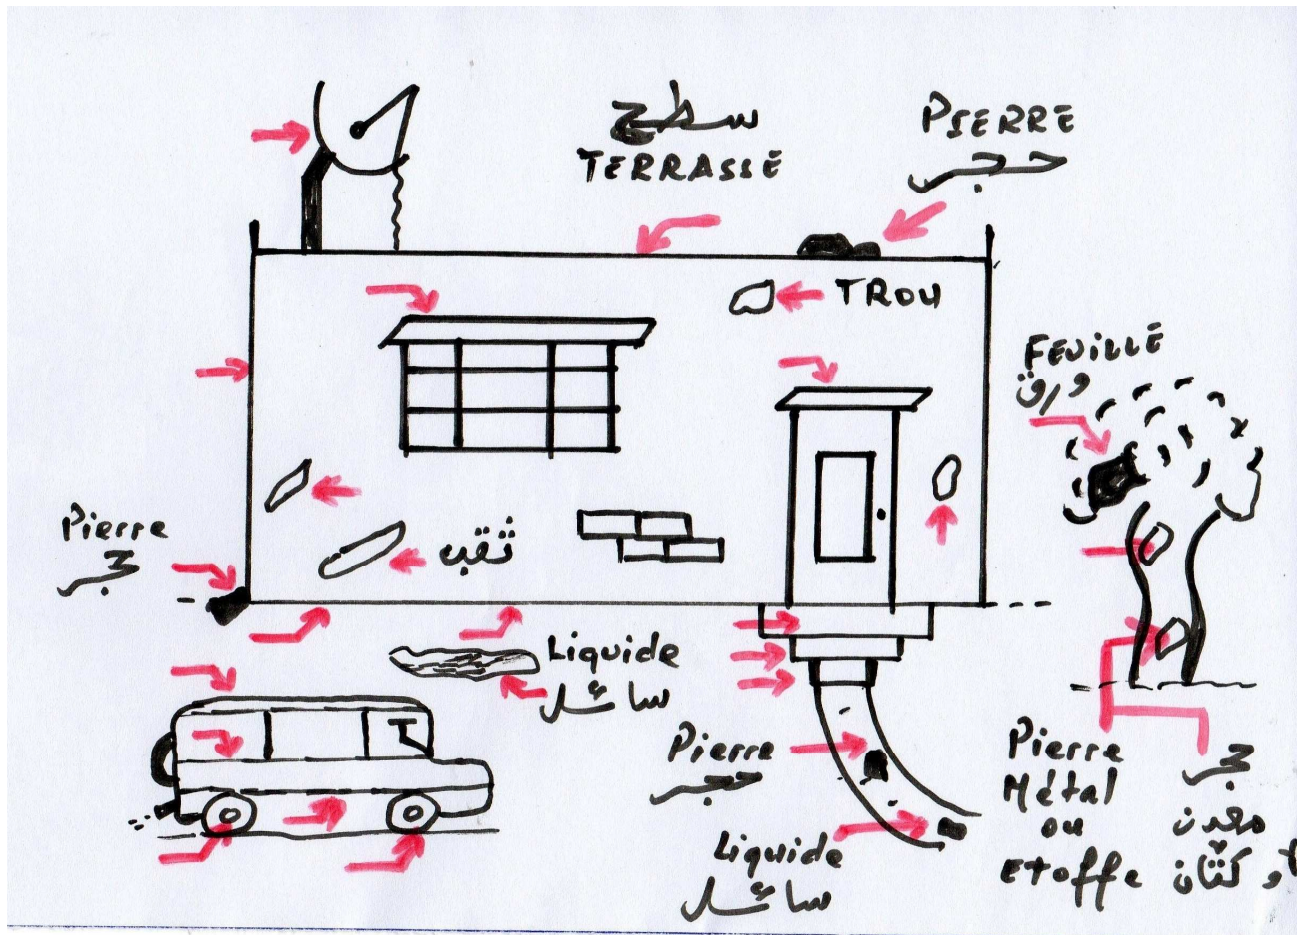 سطح
TERRASSE
PIERRE
حجر
TROU
FEUILLE
ورق
Pierre
حجر
ثقب
Liquide
سائل
Pierre
حجر
Liquide
سائل
Pierre
Métal
ou
Etoffe
حجر
معدن
أو كتّان